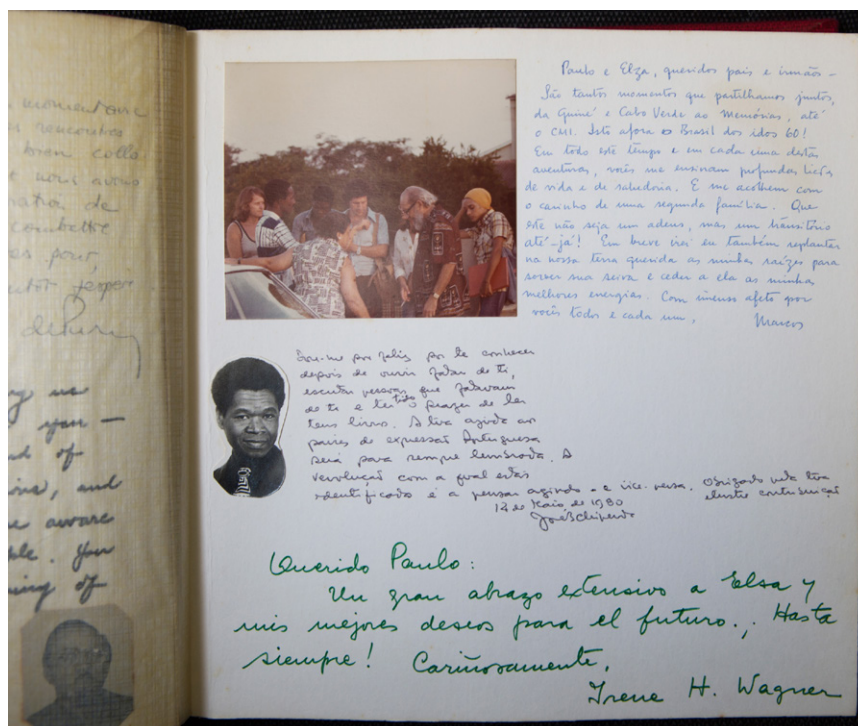 momentane
rencontres
bien colla
nous avons
ration de
combattre
es pour,
espér
ng us
you —
d of
ions, and
e aware
ple. You
ing of
Paulo e Elza, queridos pais e irmãos –
São tantos momentos que partilhamos juntos,
da Guiné e Cabo Verde ao Memórias, até
o CMI. Isto afora o Brasil dos idos 60!
Em todo este tempo e em cada uma destas
aventuras, vocês me ensinam profundas lições
de vida e de sabedoria. E me acolhem com
o carinho de uma segunda família. Que
este não seja um adeus, mas um transitório
até-já! Em breve irei eu também replantar
na nossa terra querida as minhas raízes para
sorver sua seiva e ceder a ela as minhas
melhores energias. Com imenso afeto por
vocês todos e cada um, Marcos
por feliz por te conhecer
depois de ouvir falar de ti,
escutar pessoas que falavam
de ti e ter tido o prazer de ler
teus livros. A tua ajuda aos
países de expressão Portuguesa
será para sempre lembrada. A
revolução com a qual estás
identificado é a pensar agindo e vice-versa. Obrigado pela tua
ilustre contribuição
12 de Maio de 1980
José B. Chipenda
Querido Paulo:
Un gran abrazo extensivo a Elsa y
mis mejores deseos para el futuro., Hasta
siempre! Cariñosamente,
Irene H. Wagner